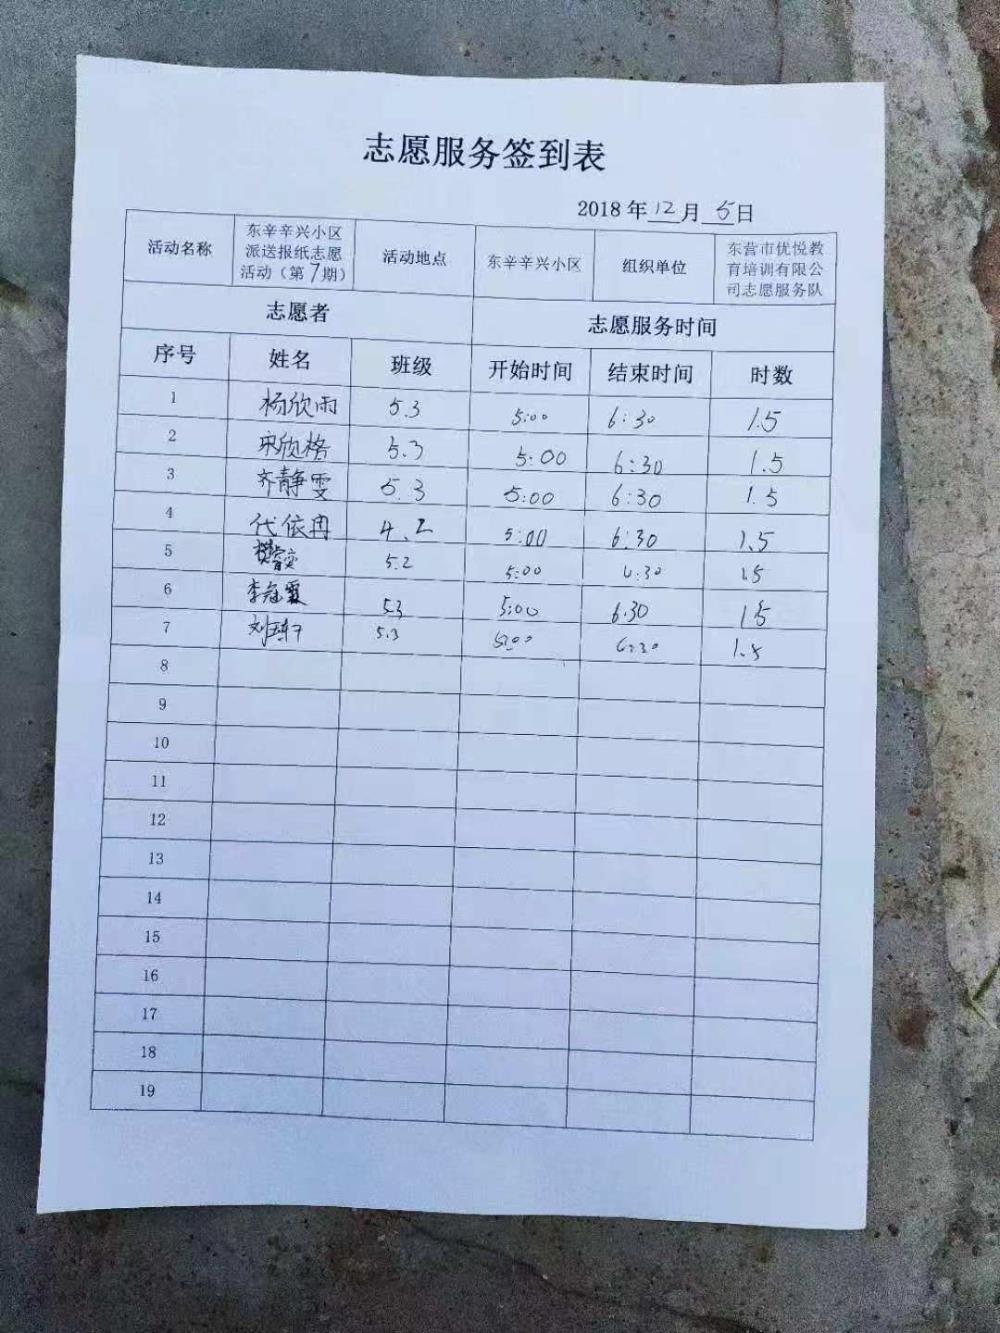 志愿服务签到表
2018 年 12 月 5 日
活动名称 东辛辛兴小区派送报纸志愿活动（第7期） 活动地点 东辛辛兴小区 组织单位 东营市优悦教育培训有限公司志愿服务队
志愿者 志愿服务时间
序号 姓名 班级 开始时间 结束时间 时数
1 杨欣雨 5.3 5:00 6:30 1.5
2 宋欣格 5.3 5:00 6:30 1.5
3 齐静雯 5.3 5:00 6:30 1.5
4 代依冉 4.2 5:00 6:30 1.5
5 5.2 5:00 6:30 1.5
6 李冠霖 5.3 5:00 6.30 1.5
7 5.3 5:00 6:30 1.5
8
9
10
11
12
13
14
15
16
17
18
19